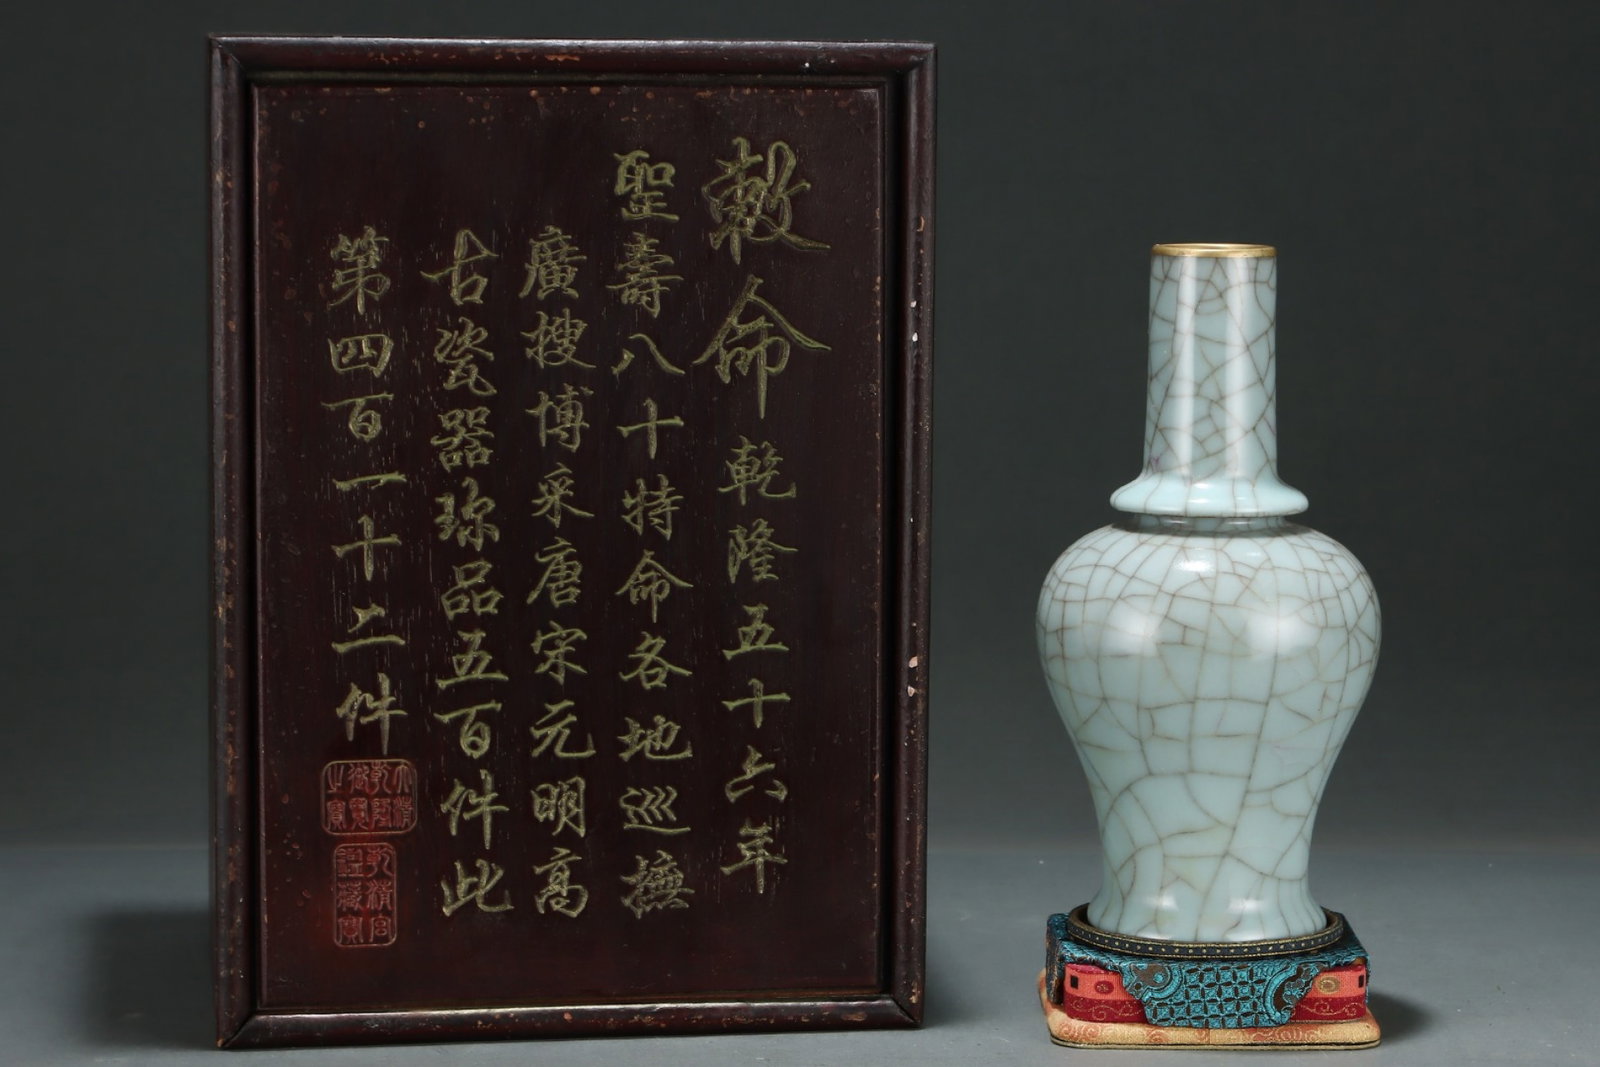 敕命乾隆五十六年
聖壽八十特命各地巡撫
廣搜博采唐宋元明高
古瓷器珎品五百件此
第四百一十二件
大清
乾隆
御覽
之寶
乾清宮
鑑藏寶